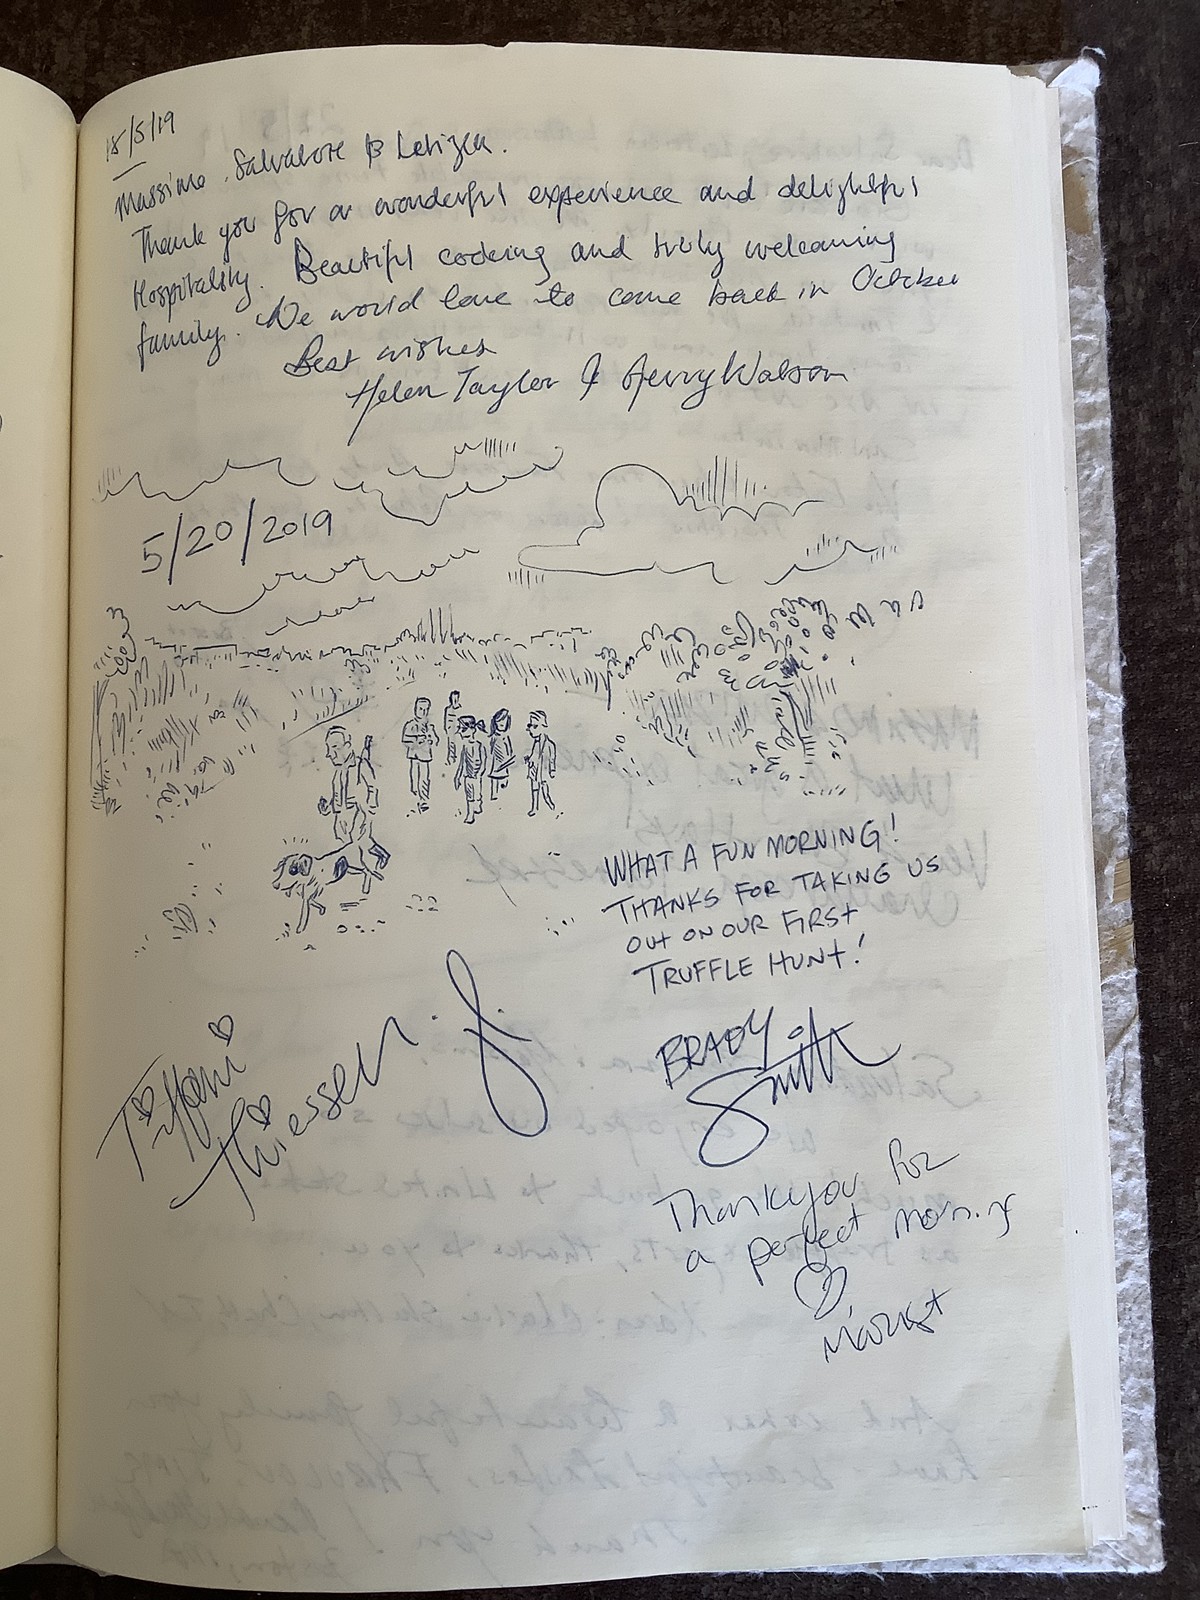 18/5/19
Massimo, Salvatore & Letizia.
Thank you for a wonderful experience and delightful
Hospitality. Beautiful cooking and truly welcoming
family. We would love to come back in October
Best wishes
Helen Taylor & Gerry Watson
5/20/2019
WHAT A FUN MORNING!
THANKS FOR TAKING US
OUT ON OUR FIRST
TRUFFLE HUNT!
BRADY
Smith
Tiffani
Thiessen
Thank you for
a perfect morning